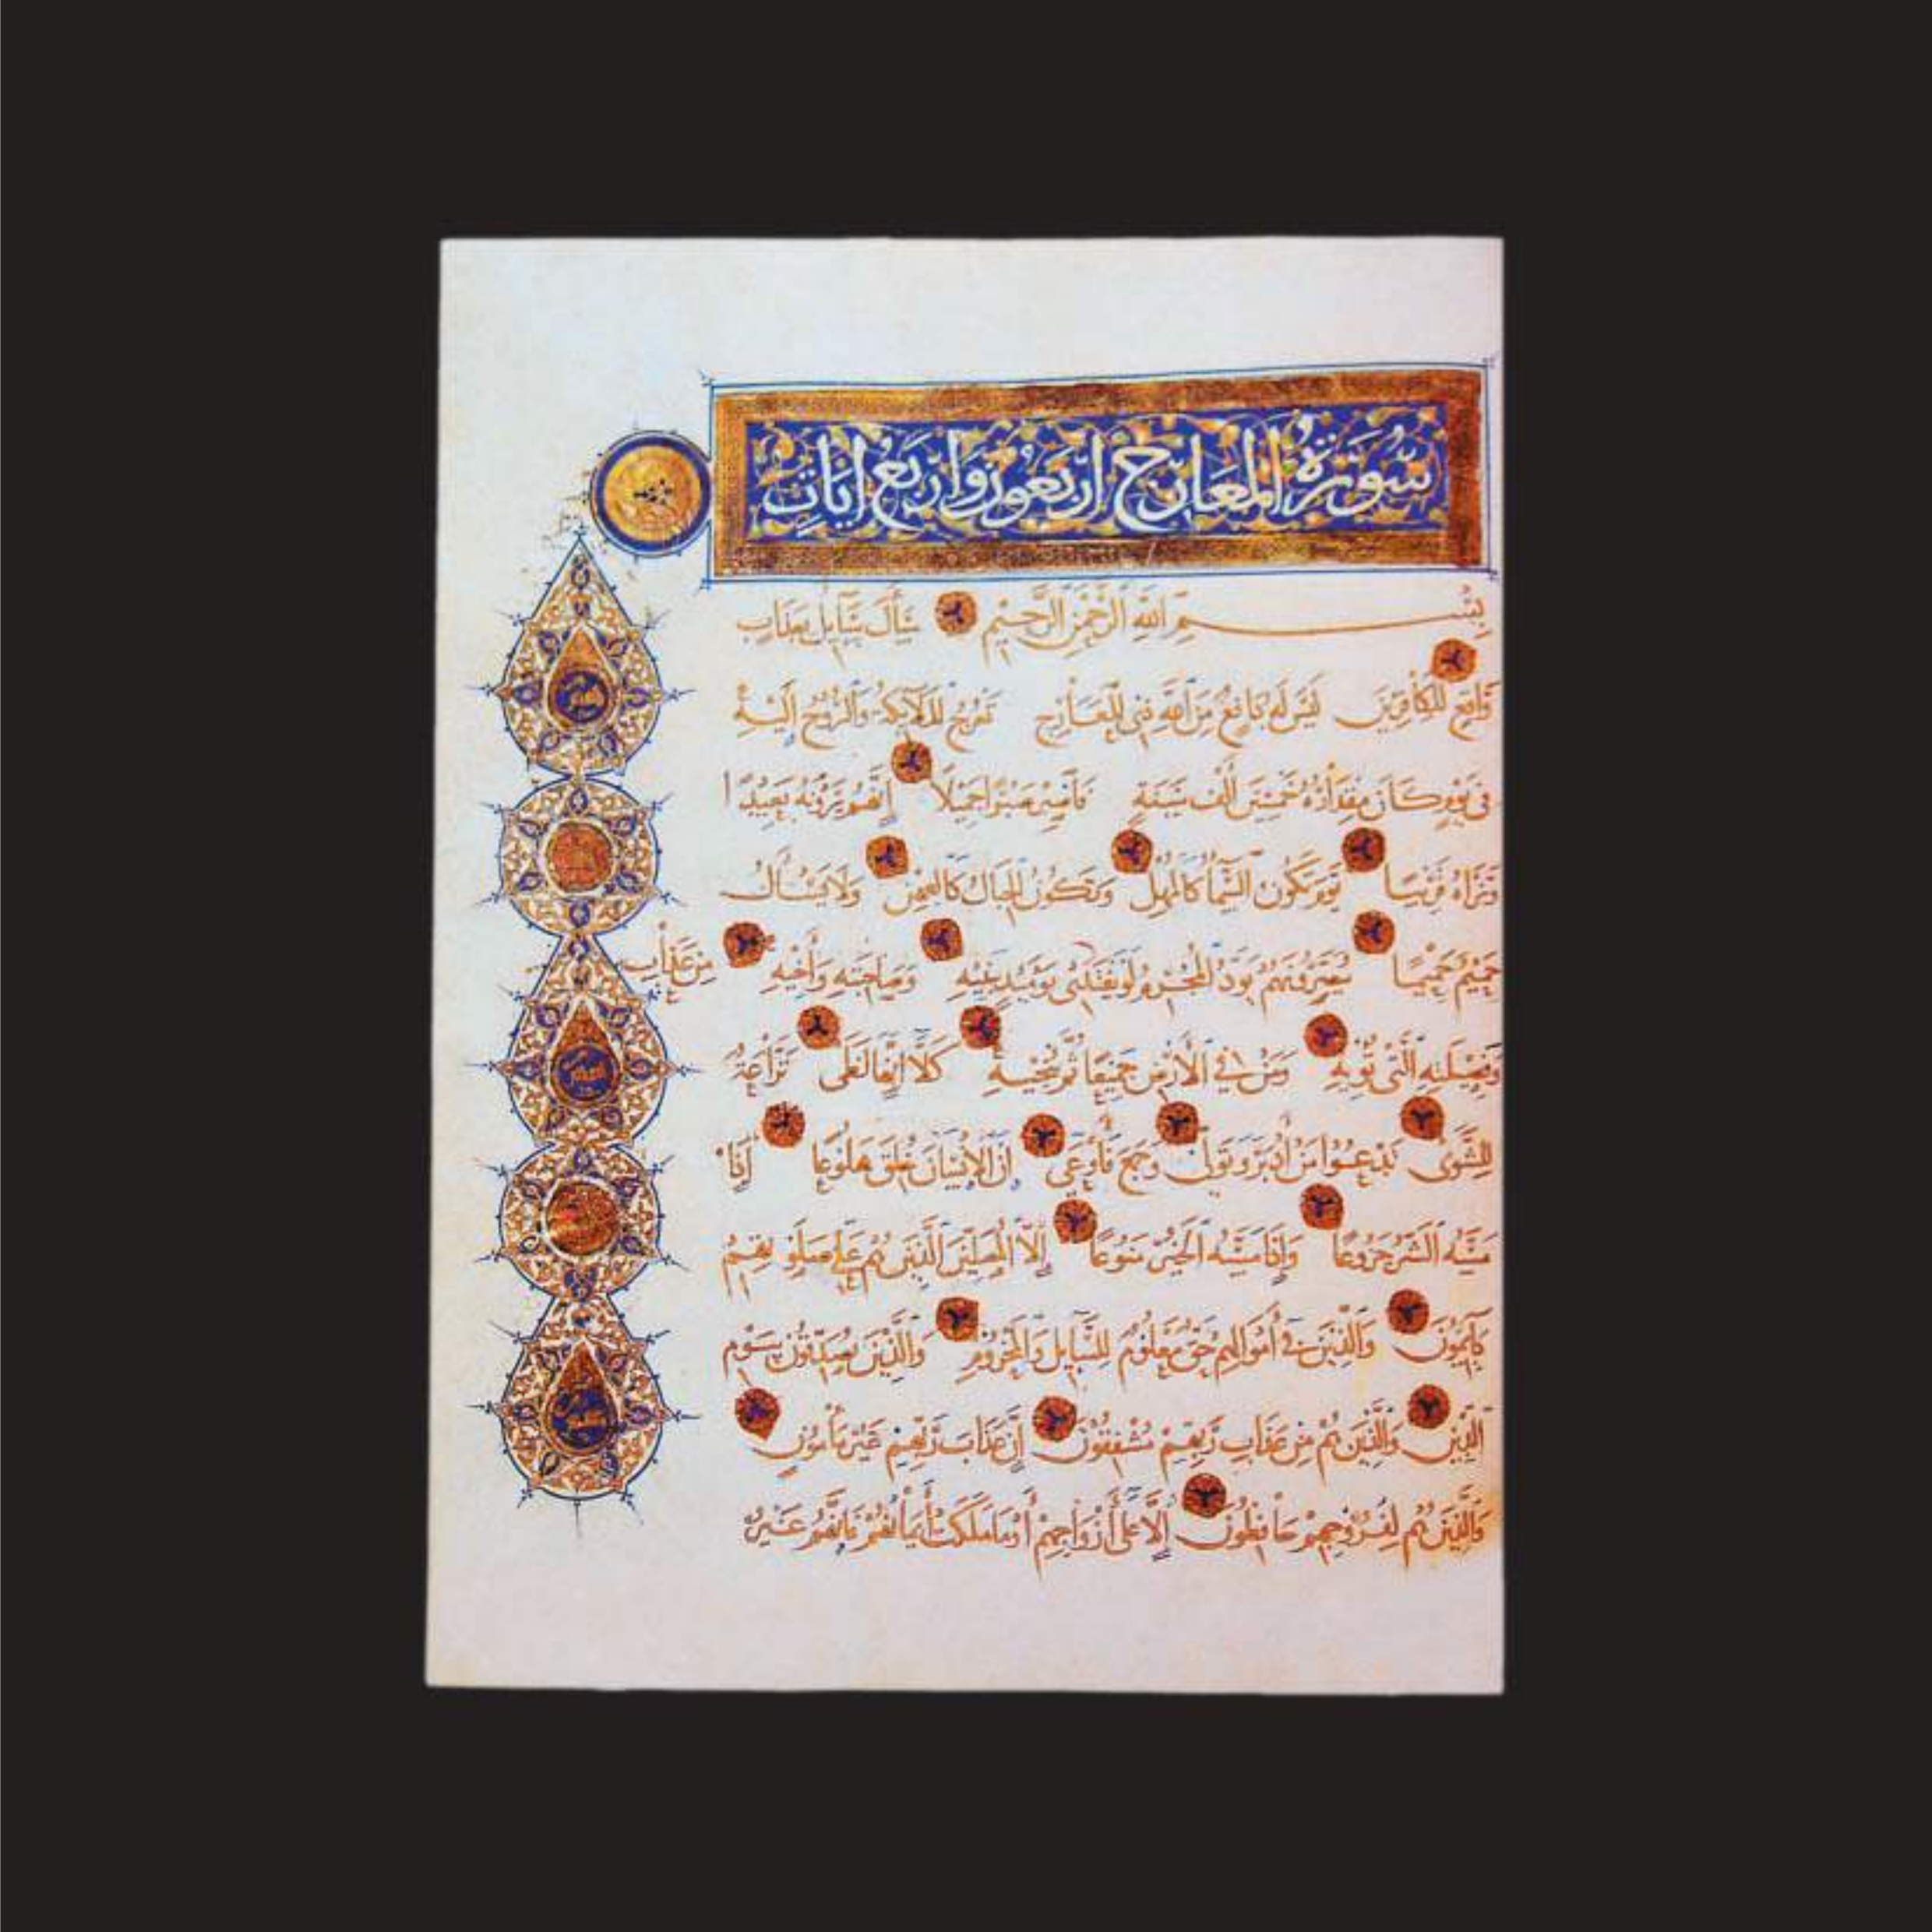 سُورَةُ المَعَارِجِ ارْبَعُونَ وَارْبَعُ ايَاتٍ
بِسْمِ اللهِ الرَّحْمٰنِ الرَّحِيمِ سَأَلَ سَايِلٌ بِعَذَابٍ
وَاقِعٍ لِلْكَافِرِينَ لَيْسَ لَهُ دَافِعٌ مِنَ اللهِ ذِي الْمَعَارِجِ تَعْرُجُ الْمَلَائِكَةُ وَالرُّوحُ إِلَيْهِ
فِي يَوْمٍ كَانَ مِقْدَارُهُ خَمْسِينَ أَلْفَ سَنَةٍ فَاصْبِرْ صَبْرًا جَمِيلًا إِنَّهُمْ يَرَوْنَهُ بَعِيدًا
وَنَرَاهُ قَرِيبًا يَوْمَ تَكُونُ السَّمَاءُ كَالْمُهْلِ وَتَكُونُ الْجِبَالُ كَالْعِهْنِ وَلَا يَسْأَلُ
حَمِيمٌ حَمِيمًا يُبَصَّرُونَهُمْ يَوَدُّ الْمُجْرِمُ لَوْ يَفْتَدِي يَوْمَئِذٍ بِبَنِيهِ وَصَاحِبَتِهِ وَأَخِيهِ مِنْ عَذَابِ
وَفَصِيلَتِهِ الَّتِي تُؤْيهِ وَمَنْ فِي الْأَرْضِ جَمِيعًا ثُمَّ يُنْجِيهِ كَلَّا إِنَّهَا لَظَى نَزَّاعَةً
لِلشَّوَى تَدْعُوا مَنْ أَدْبَرَ وَتَوَلَّى وَجَمَعَ فَأَوْعَى إِنَّ الْإِنْسَانَ خُلِقَ هَلُوعًا إِذَا
مَسَّهُ الشَّرُّ جَزُوعًا وَإِذَا مَسَّهُ الْخَيْرُ مَنُوعًا إِلَّا الْمُصَلِّينَ الَّذِينَ هُمْ عَلَى صَلَوتِهِمْ
دَايِمُونَ وَالَّذِينَ فِي أَمْوَالِهِمْ حَقٌّ مَعْلُومٌ لِلسَّايِلِ وَالْمَحْرُومِ وَالَّذِينَ يُصَدِّقُونَ بِيَوْمِ
الدِّينِ وَالَّذِينَ هُمْ مِنْ عَذَابِ رَبِّهِمْ مُشْفِقُونَ إِنَّ عَذَابَ رَبِّهِمْ غَيْرُ مَأْمُونٍ
وَالَّذِينَ هُمْ لِفُرُوجِهِمْ حَافِظُونَ إِلَّا عَلَى أَزْوَاجِهِمْ أَوْ مَا مَلَكَتْ أَيْمَانُهُمْ فَإِنَّهُمْ غَيْرُ